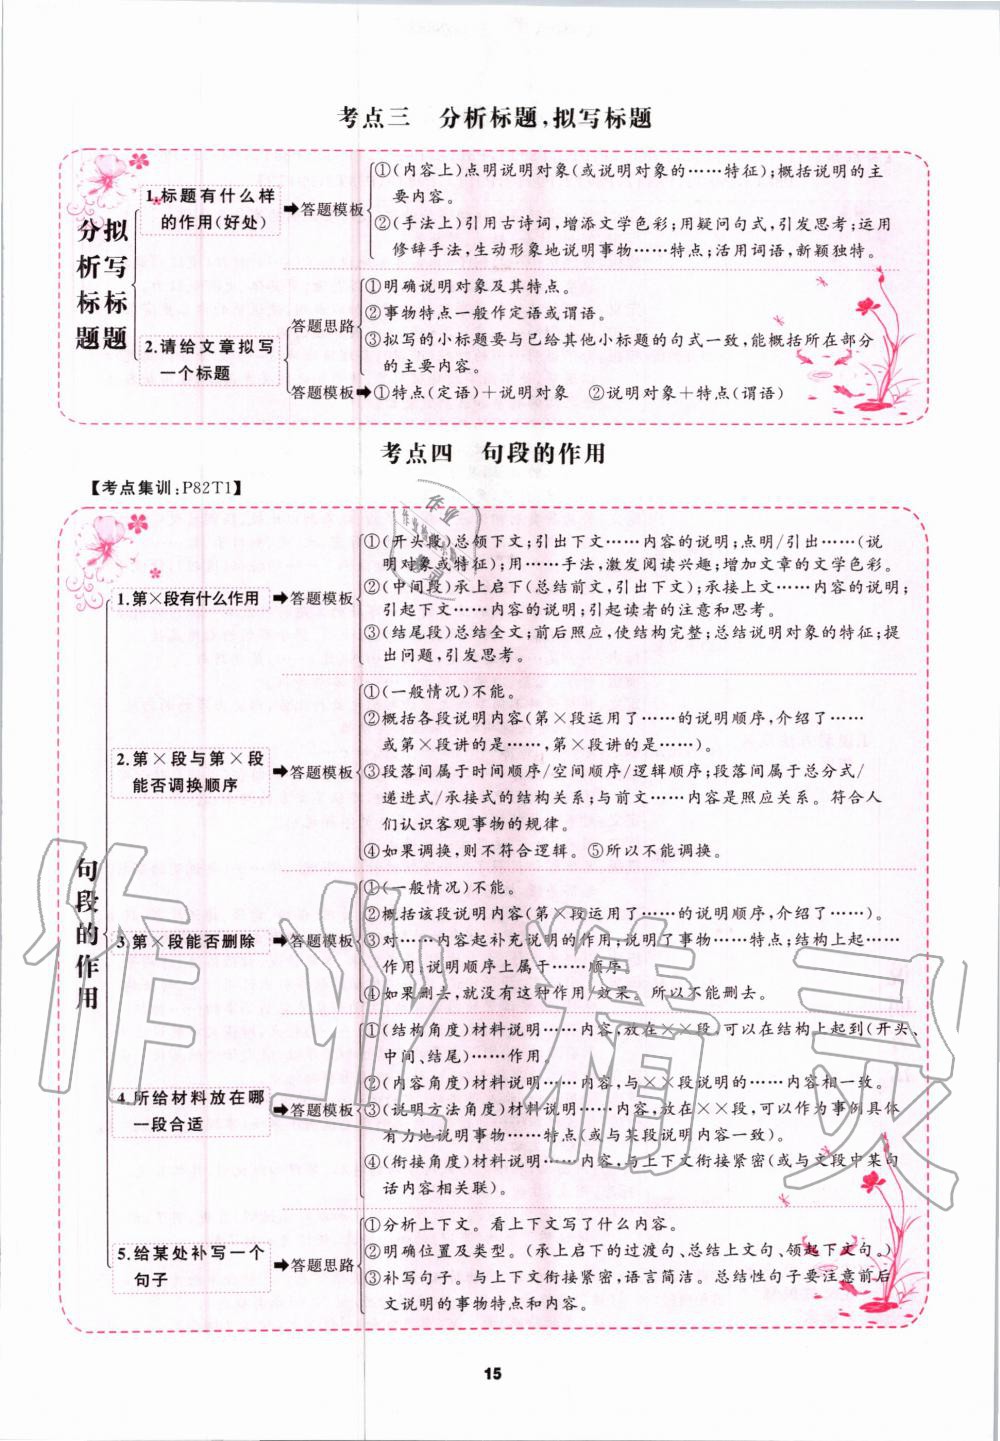 考点三　分析标题,拟写标题
分析标题
拟写标题
1.标题有什么样
的作用(好处)
答题模板
①(内容上)点明说明对象(或说明对象的……特征);概括说明的主
要内容。
②(手法上)引用古诗词,增添文学色彩;用疑问句式,引发思考;运用
修辞手法,生动形象地说明事物……特点;活用词语,新颖独特。
2.请给文章拟写
一个标题
答题思路
①明确说明对象及其特点。
②事物特点一般作定语或谓语。
③拟写的小标题要与已给其他小标题的句式一致,能概括所在部分
的主要内容。
答题模板
①特点(定语)+说明对象　②说明对象+特点(谓语)
考点四　句段的作用
【考点集训:P82T1】
句段的作用
1.第×段有什么作用
答题模板
①(开头段)总领下文;引出下文……内容的说明;点明/引出……(说
明对象或特征);用……手法,激发阅读兴趣;增加文章的文学色彩。
②(中间段)承上启下(总结前文,引出下文);承接上文……内容的说明;
引起下文……内容的说明;引起读者的注意和思考。
③(结尾段)总结全文;前后照应,使结构完整;总结说明对象的特征;提
出问题,引发思考。
2.第×段与第×段
能否调换顺序
答题模板
①(一般情况)不能。
②概括各段说明内容(第×段运用了……的说明顺序,介绍了……
或第×段讲的是……,第×段讲的是……)。
③段落间属于时间顺序/空间顺序/逻辑顺序;段落间属于总分式/
递进式/承接式的结构关系;与前文……内容是照应关系。符合人
们认识客观事物的规律。
④如果调换,则不符合逻辑。⑤所以不能调换。
3.第×段能否删除
答题模板
①(一般情况)不能。
②概括该段说明内容(第×段运用了……的说明顺序,介绍了……)。
③对……内容起补充说明的作用;说明了事物……特点;结构上起……
作用;说明顺序上属于……顺序。
④如果删去,就没有这种作用/效果。所以不能删去。
4.所给材料放在哪
一段合适
答题模板
①(结构角度)材料说明……内容,放在××段,可以在结构上起到(开头、
中间、结尾)……作用。
②(内容角度)材料说明……内容,与××段说明的……内容相一致。
③(说明方法角度)材料说明……内容,放在××段,可以作为事例具体
有力地说明事物……特点(或与某段说明内容一致)。
④(衔接角度)材料说明……内容,与上下文衔接紧密(或与文段中某句
话内容相关联)。
5.给某处补写一个
句子
答题思路
①分析上下文。看上下文写了什么内容。
②明确位置及类型。(承上启下的过渡句、总结上文句、领起下文句。)
③补写句子。与上下文衔接紧密,语言简洁。总结性句子要注意前后
文说明的事物特点和内容。
15
作业精灵